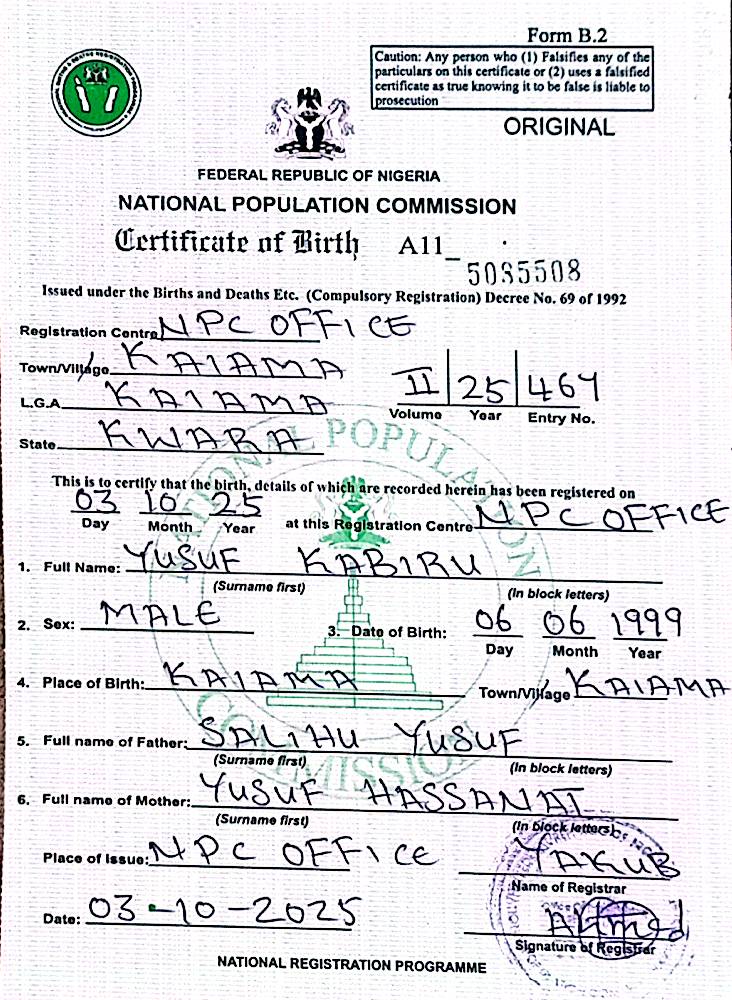 Form B.2
Caution: Any person who (1) Falsifies any of the
particulars on this certificate or (2) uses a falsified
certificate as true knowing it to be false is liable to
prosecution
ORIGINAL
FEDERAL REPUBLIC OF NIGERIA
NATIONAL POPULATION COMMISSION
Certificate of Birth A11_ 5035508
Issued under the Births and Deaths Etc. (Compulsory Registration) Decree No. 69 of 1992
Registration Centre NPC OFFICE
Town/Village KAIAMA
L.G.A KAIAMA
II 25 464
Volume Year Entry No.
State KWARA
NATIONAL POPULATION COMMISSION
This is to certify that the birth, details of which are recorded herein has been registered on
03 10 25 at this Registration Centre NPC OFFICE
Day Month Year
1. Full Name: YUSUF KABIRU
(Surname first) (In block letters)
2. Sex: MALE 3. Date of Birth: 06 06 1999
Day Month Year
4. Place of Birth: KAIAMA Town/Village KAIAMA
5. Full name of Father: SALIHU YUSUF
(Surname first) (In block letters)
6. Full name of Mother: YUSUF HASSANAT
(Surname first) (In block letters)
Place of Issue: NPC OFFICE YAKUB
Name of Registrar
Date: 03-10-2025 Ahmed
Signature of Registrar
NATIONAL REGISTRATION PROGRAMME